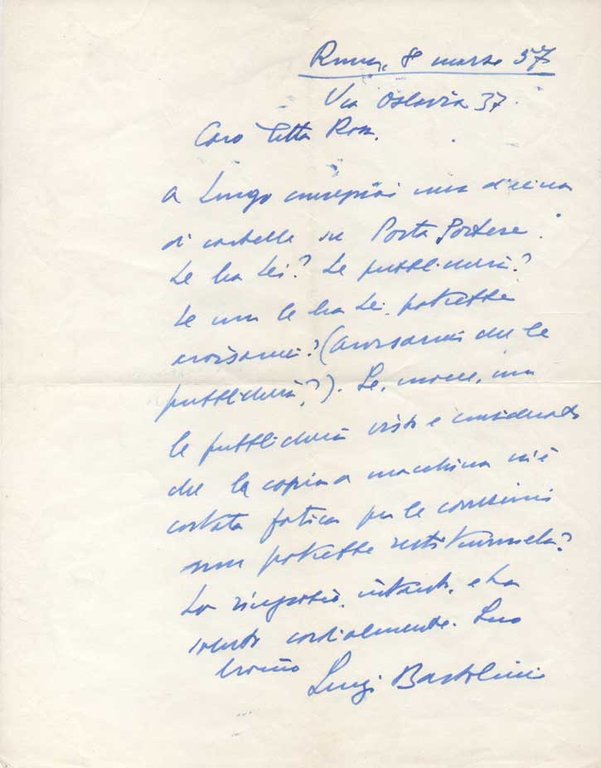 Roma, 8 marzo 57
Via Oslavia 37.
Caro Titta Rosa.
A Lungo consegnai una decina
di cartelle su Porta Portese.
Le ha Lei? Le pubblicherà?
Se non le ha Lei, potrebbe
avvisarmi? (avvisarmi che le
pubblicherà?). Se, invece, non
le pubblicherà visto e considerato
che la copia a macchina m'è
costata fatica per le correzioni
non potrebbe restituirmela?
La ringrazio, intanto, e La
saluto cordialmente. Suo
Luigi Bartolini